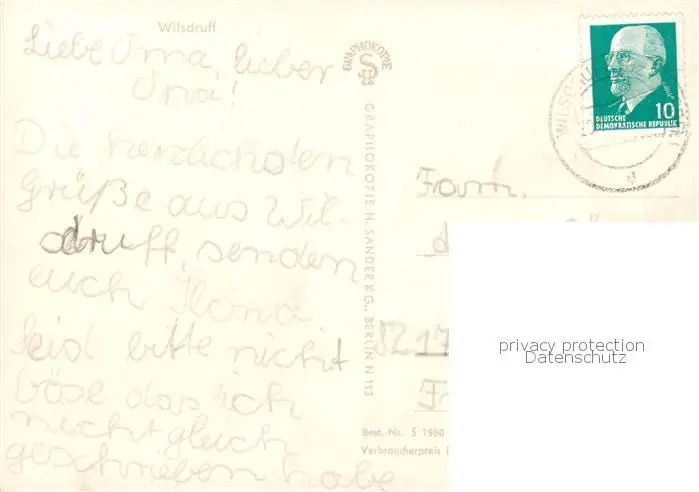 Wilsdruff
Liebe Oma, lieber
Opa!
Die herzlichsten
Grüße aus Wil-
sdruff, senden
euch Ilona
Seid bitte nicht
böse das ich
nicht gleich
geschrieben habe
GRAPHOKOPIE
GRAPHOKOPIE H. SANDER KG., BERLIN N 113
Best.-Nr. S 1980
Verbraucherpreis
10
DEUTSCHE
DEMOKRATISCHE REPUBLIK
Fam.
8217
privacy protection
Datenschutz